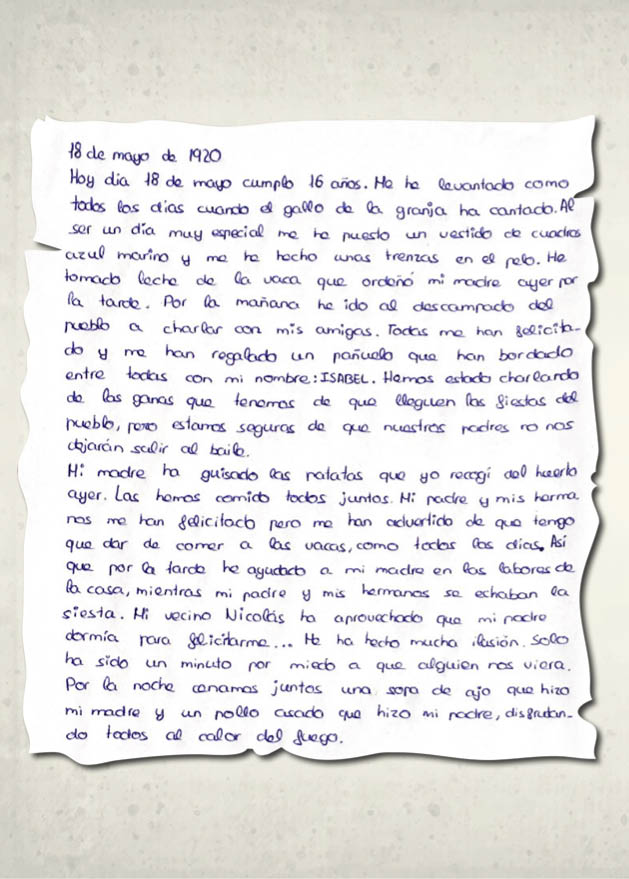 18 de mayo de 1920
Hoy día 18 de mayo cumplo 16 años. Me he levantado como
todos los días cuando el gallo de la granja ha cantado. Al
ser un día muy especial me he puesto un vestido de cuadros
azul marino y me he hecho unas trenzas en el pelo. He
tomado leche de la vaca que ordeñó mi madre ayer por
la tarde. Por la mañana he ido al descampado del
pueblo a charlar con mis amigas. Todas me han felicita-
do y me han regalado un pañuelo que han bordado
entre todas con mi nombre: ISABEL. Hemos estado charlando
de las ganas que tenemos de que lleguen las fiestas del
pueblo, pero estamos seguras de que nuestros padres no nos
dejarán salir al baile.
Mi madre ha guisado las patatas que yo recogí del huerto
ayer. Las hemos comido todos juntos. Mi padre y mis herma
nos me han felicitado pero me han advertido de que tengo
que dar de comer a las vacas, como todos los días. Así
que por la tarde he ayudado a mi madre en las labores de
la casa, mientras mi padre y mis hermanos se echaban la
siesta. Mi vecino Nicolás ha aprovechado que mi padre
dormía para felicitarme... Me ha hecho mucha ilusión. Solo
ha sido un minuto por miedo a que alguien nos viera.
Por la noche cenamos juntos una sopa de ajo que hizo
mi madre y un pollo asado que hizo mi padre, disfrutan-
do todos al calor del fuego.